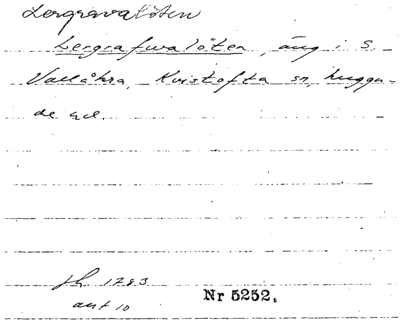 Lergravalöten
Lergrafwalöten, äng i S.
Vallåkra, Kvistofta sn, Luggu-
de hd.
sk 1783
akt 10
Nr 5252.